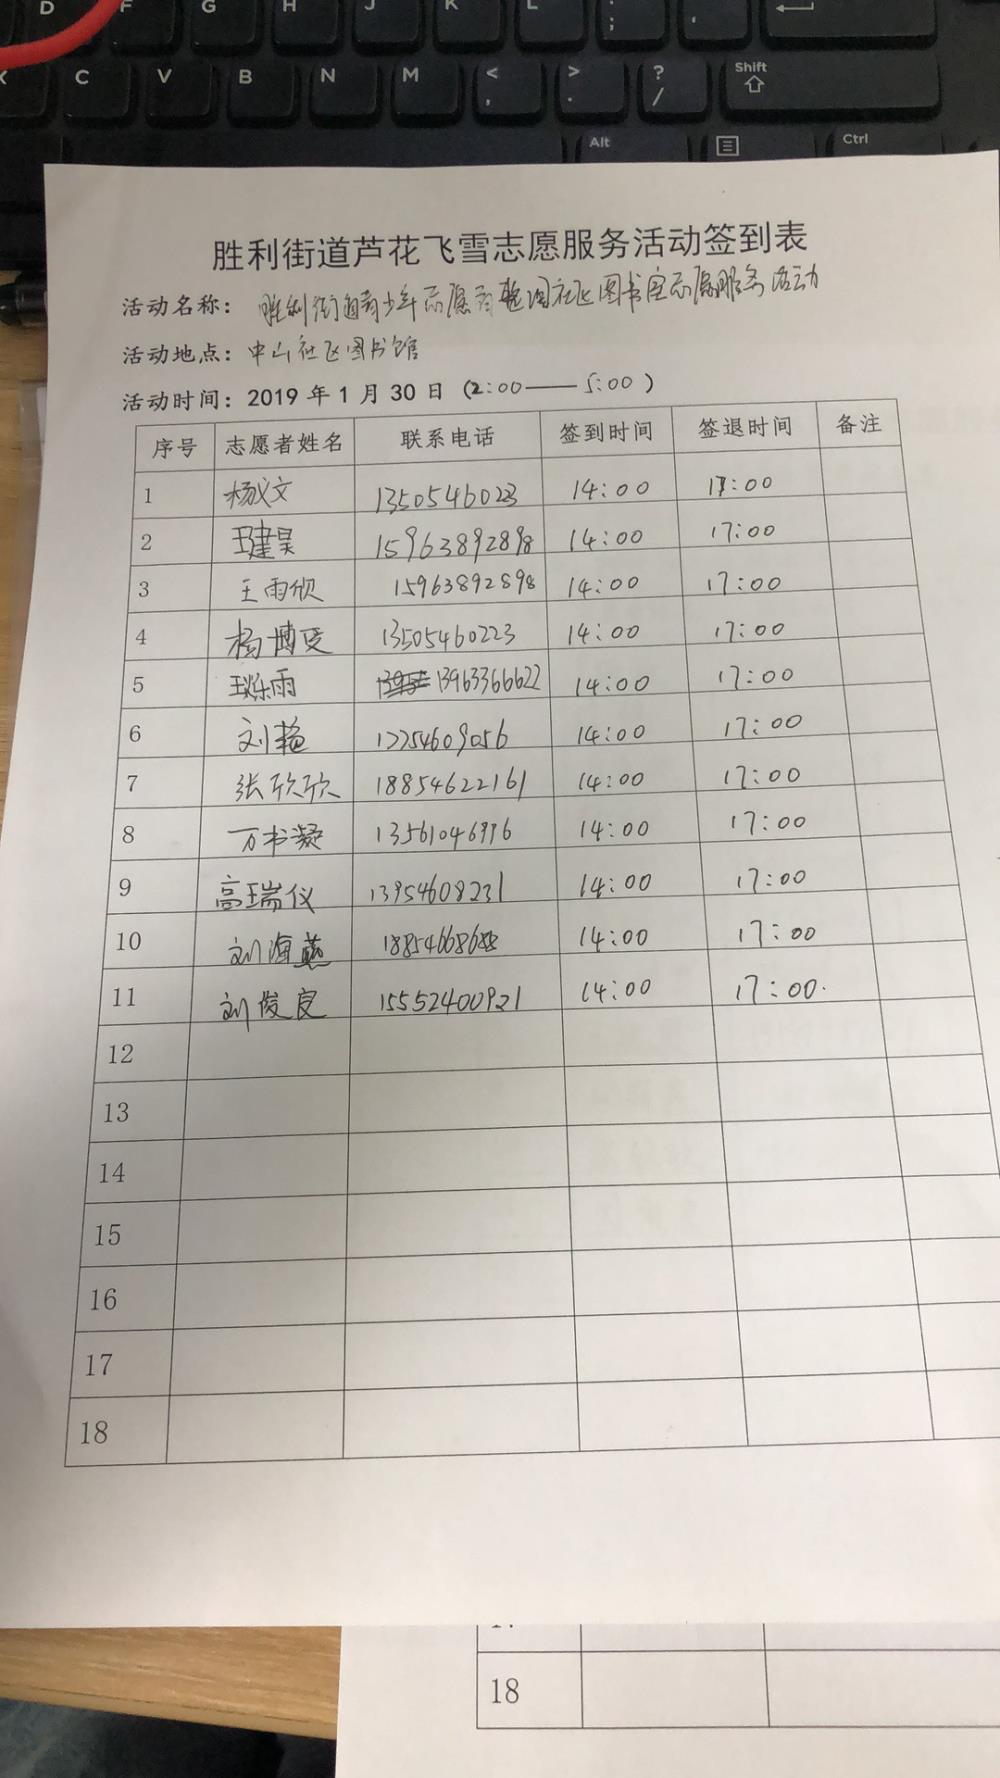 D F G H J K L : ;
X C V B N M < , > . ? / Shift
Alt Ctrl
胜利街道芦花飞雪志愿服务活动签到表
活动名称: 胜利街道青少年志愿者整理社区图书室志愿服务活动
活动地点: 中山社区图书馆
活动时间: 2019 年 1 月 30 日 (2:00——5:00)
序号 志愿者姓名 联系电话 签到时间 签退时间 备注
1 杨义文 1350546023 14:00 17:00
2 王建昊 15963892898 14:00 17:00
3 王雨欣 15963892898 14:00 17:00
4 杨博受 13505460223 14:00 17:00
5 雨 13963366622 14:00 17:00
6 刘艳 14:00 17:00
7 张欣欣 18854622161 14:00 17:00
8 万书凝 14:00 17:00
9 高瑞仪 13954608231 14:00 17:00
10 刘海燕 14:00 17:00
11 刘俊良 15552400921 14:00 17:00.
12
13
14
15
16
17
18
18